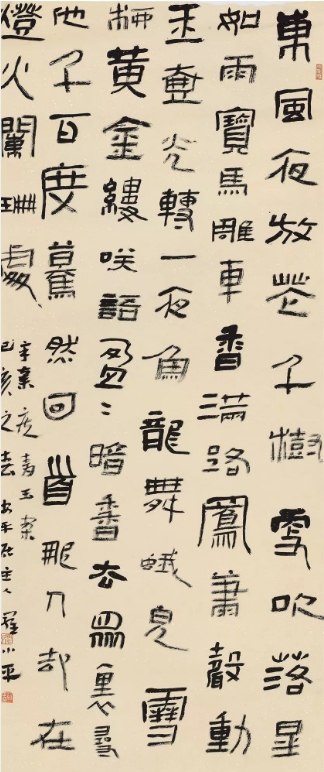 東風夜放花千樹更吹落星
如雨寶馬雕車香滿路鳳簫聲動
玉壺光轉一夜魚龍舞蛾兒雪
柳黃金縷咲語盈〻暗香去眾里尋
他千百度驀然回首那人却在
燈火闌珊處
辛棄疾青玉案
己亥之主人羅小平